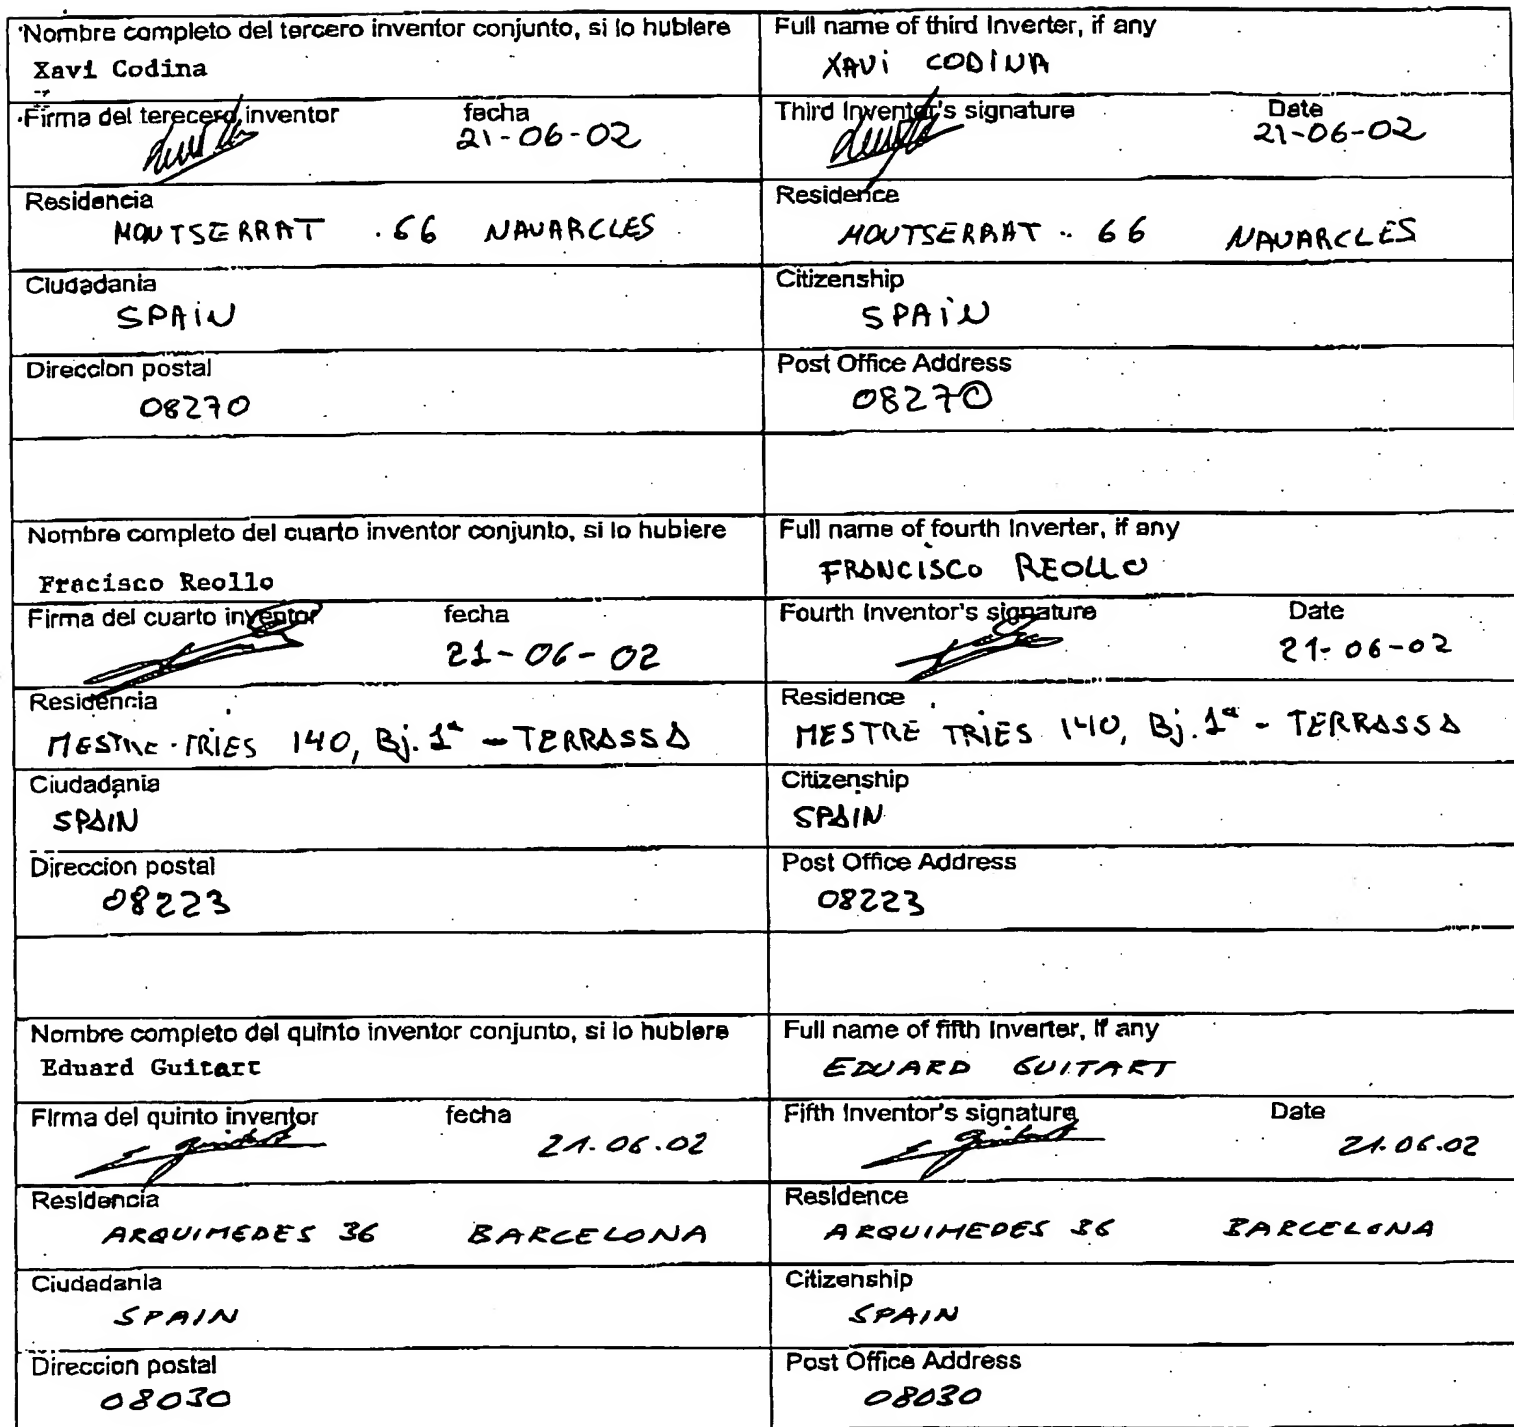 Nombre completo del tercero inventor conjunto, si lo hubiere
Xavi Codina
Full name of third Inverter, if any
XAVI CODINA
Firma del terecero inventor fecha
21-06-02
Third Inventor's signature Date
21-06-02
Residencia
MONTSERRAT . 66 NAVARCLES
Residence
MONTSERRAT .. 66 NAVARCLES
Ciudadania
SPAIN
Citizenship
SPAIN
Direccion postal
08270
Post Office Address
08270
Nombre completo del cuarto inventor conjunto, si lo hubiere
Fracisco Reollo
Full name of fourth Inverter, if any
FRANCISCO REOLLO
Firma del cuarto inventor fecha
21-06-02
Fourth Inventor's signature Date
21-06-02
Residencia
MESTRE TRIES 140, Bj. 1ª - TERRASSA
Residence
MESTRE TRIES 140, Bj. 1ª - TERRASSA
Ciudadania
SPAIN
Citizenship
SPAIN
Direccion postal
08223
Post Office Address
08223
Nombre completo del quinto inventor conjunto, si lo hubiere
Eduard Guitart
Full name of fifth Inverter, if any
EDUARD GUITART
Firma del quinto inventor fecha
21.06.02
Fifth Inventor's signature Date
21.06.02
Residencia
ARQUIMEDES 36 BARCELONA
Residence
ARQUIMEDES 36 BARCELONA
Ciudadania
SPAIN
Citizenship
SPAIN
Direccion postal
08030
Post Office Address
08030